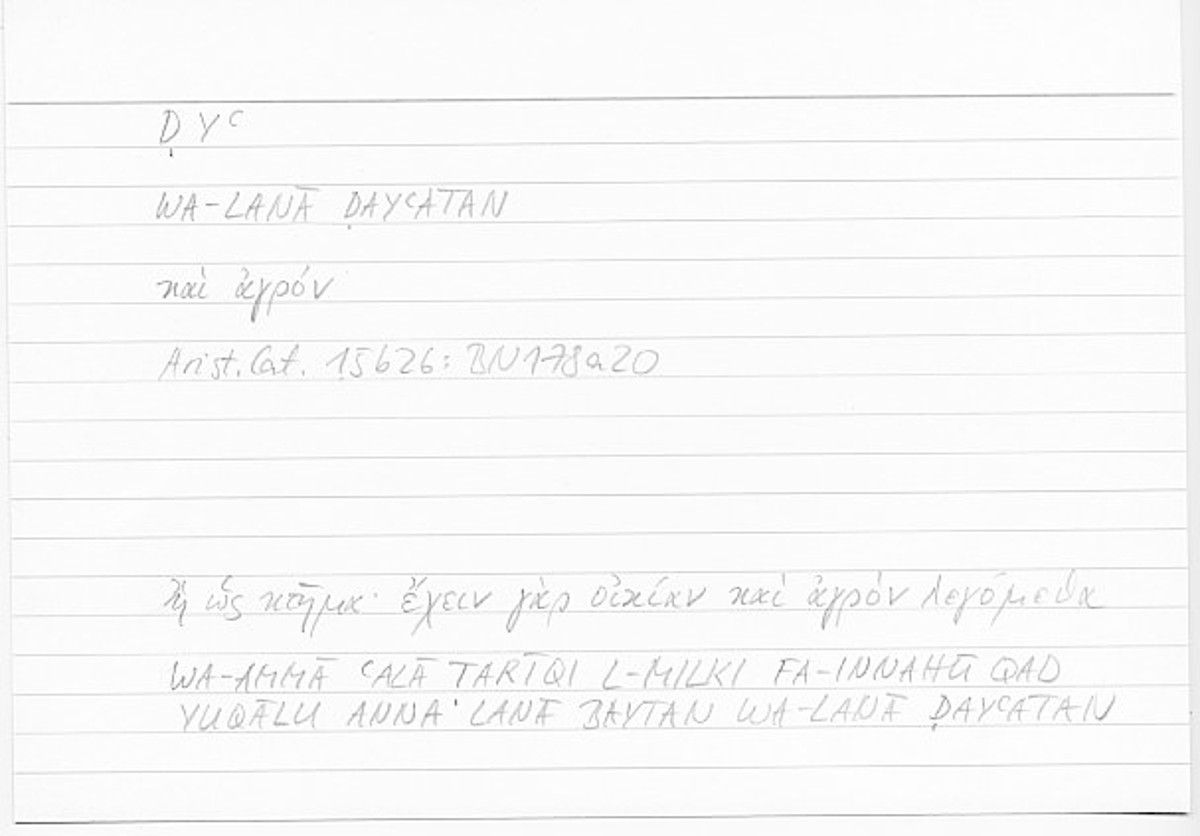 Ḍ Y ͨ
WA-LANĀ ḌAYʿATAN
καὶ ἀγρόν
Arist. Cat. 15b26: BN178a20
ἢ ὡς κτῆμα· ἔχειν γὰρ οἰκίαν καὶ ἀγρὸν λεγόμεθα
WA-AMMĀ ʿALĀ TARĪQI L-MILKI FA-INNAHŪ QAD
YUQĀLU ANNA LANĀ BAYTAN WA-LANĀ ḌAYʿATAN